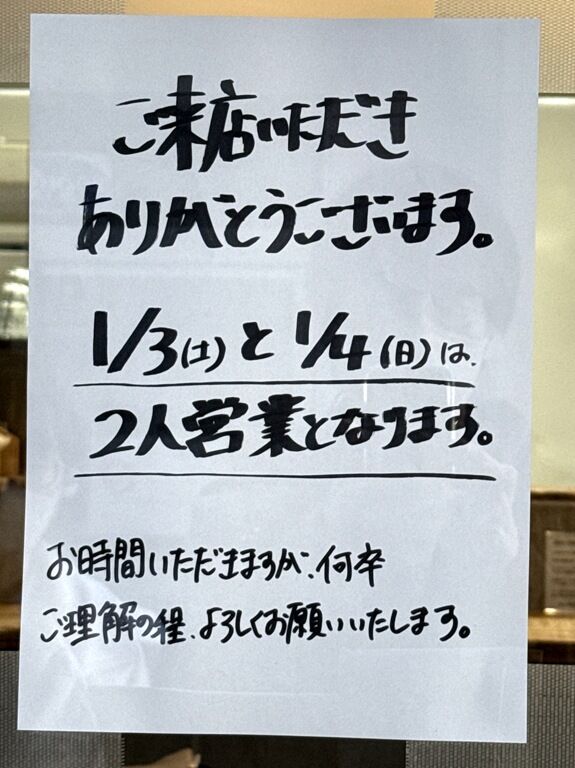 ご来店いただき
ありがとうございます。
1/3(土)と1/4(日)は、
2人営業となります。
お時間いただきますが、何卒
ご理解の程、よろしくお願いいたします。